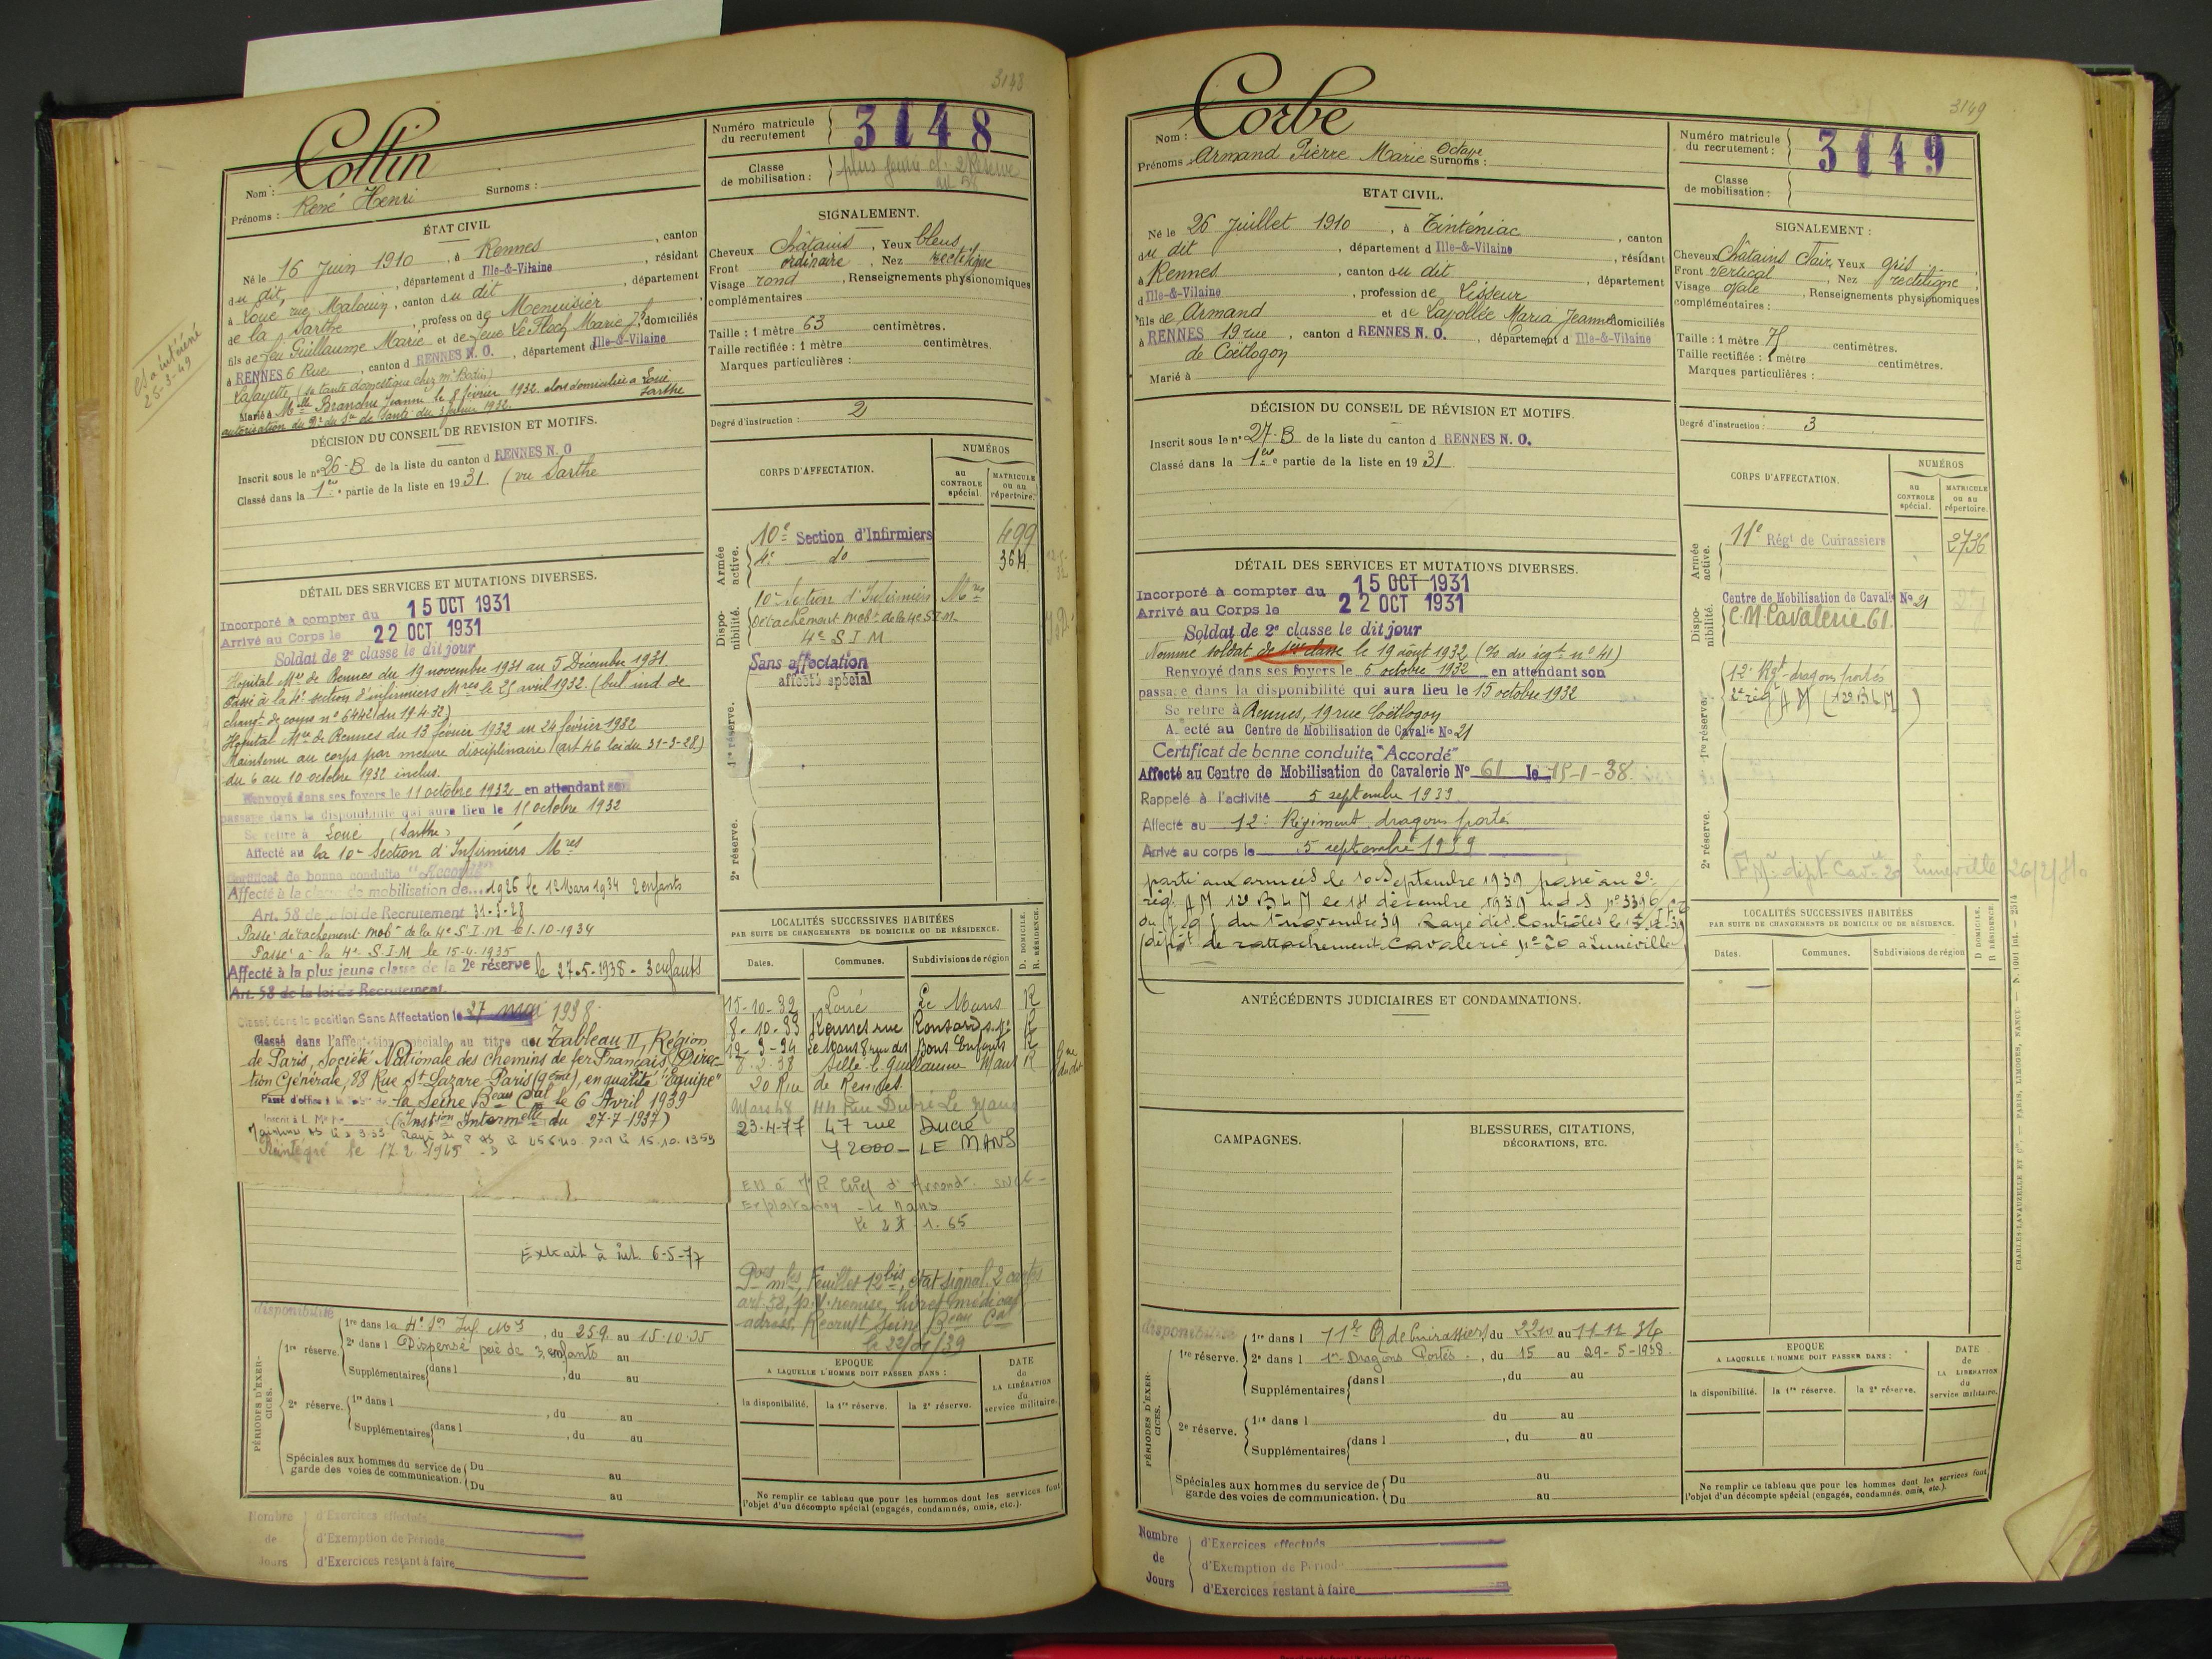 3148
Collin
Nom :
Surnoms :
Prénoms : René Henri
ÉTAT CIVIL
Né le 16 Juin 1910, à Rennes, canton
du dit, département d Ille-&-Vilaine, résidant
à Loué rue Malouin, canton du dit, département
de la Sarthe, profession de Menuisier
fils de feu Guillaume Marie et de feue Le Floch Marie Jh, domiciliés
à RENNES 6 Rue, canton d RENNES N. O., département d Ille-&-Vilaine
Lafayette (sa tante domestique chez Mr Bodin)
Marié à Melle Branchu Jeanne le 8 février 1932. alors domiciliée à Loué Sarthe
autorisation du Dr du Sce de Santé du 3 janvier 1932.
DÉCISION DU CONSEIL DE REVISION ET MOTIFS.
Inscrit sous le n° 26-B de la liste du canton d RENNES N. O
Classé dans la 1ère partie de la liste en 1931 (vu Sarthe
DÉTAIL DES SERVICES ET MUTATIONS DIVERSES.
Incorporé à compter du 15 OCT 1931
Arrivé au Corps le 22 OCT 1931
Soldat de 2e classe le dit jour
Hôpital Mre de Rennes du 19 novembre 1931 au 5 Décembre 1931
Passé à la 4e section d'infirmiers Mres le 25 avril 1932. (bul ind. de
changt de corps n° 6442 du 19.4.32)
Hôpital Mre de Rennes du 13 février 1932 au 24 février 1932
Maintenu au corps par mesure disciplinaire (art 46 loi du 31-3-28)
du 6 au 10 octobre 1932 inclus.
Renvoyé dans ses foyers le 11 octobre 1932 en attendant son
passage dans la disponibilité qui aura lieu le 15 octobre 1932
Se retire à Loué (Sarthe)
Affecté au la 10e Section d'Infirmiers Mres
Certificat de bonne conduite "Accordé"
Affecté à la classe de mobilisation de... 1926 le 12 Mars 1934 2 enfants
Art. 58 de la loi de Recrutement 31-3-28
Passé détachement mobr de la 4e S.I.M le 1-10-1934
Passé à la 4e S.I.M le 15-4-1935
Affecté à la plus jeune classe de la 2e réserve le 27-5-1938 - 3 enfants
Art. 58 de la loi de Recrutement.
Classé dans la position Sans Affectation le 27 mai 1938
Classé dans l'affectation spéciale au titre du Tableau II, Région
de Paris, Société Nationale des chemins de fer Français, Direc-
tion Générale, 88 Rue St Lazare Paris (9ème), en qualité "Equipe"
Passé d'office à la de la Seine Beau Cal le 6 Avril 1939
(Instion Intermelle du 27-7-1937)
Réintégré le 17 2 1965
Extrait à Int. 6-5-77
Numéro matricule
du recrutement
3148
Classe
de mobilisation :
plus jeune cl. 2 Réserve
SIGNALEMENT.
Cheveux Châtains, Yeux bleus
Front ordinaire, Nez rectiligne
Visage rond, Renseignements physionomiques
complémentaires
Taille : 1 mètre 63 centimètres.
Taille rectifiée : 1 mètre centimètres.
Marques particulières :
Degré d'instruction : 2
CORPS D'AFFECTATION.
NUMÉROS
au CONTROLE spécial.
MATRICULE ou au répertoire.
Armée active.
10e Section d'Infirmiers 499
4e do 364
Disponibilité.
10e Section d'Infirmiers Mres
Détachement mobr de la 4e S.I.M.
4e S I M
Sans affectation
affecté spécial
1re réserve.
2e réserve.
LOCALITÉS SUCCESSIVES HABITÉES
PAR SUITE DE CHANGEMENTS DE DOMICILE OU DE RÉSIDENCE.
D. DOMICILE.
R. RÉSIDENCE.
Dates. Communes. Subdivisions de région
15-10-32 Loué Le Mans R
8-10-33 Rennes rue Ronsard R
12-3-34 Le Mans 8 rue des Bons Enfants R
8.2.38 Sillé-le-Guillaume Mans R
20 Rue de Rennes
Mars 48 44 Rue Ducré Le Mans
23-4-77 47 rue Ducré
72000 - LE MANS
Exploitation - Le Mans
le 27.1.65
Pces mles, Feuillet 12bis, état signal. 2 cartes
art. 58, p.v. remise, livret médical
adress. Recrutt Seine Beau Cal
EPOQUE
A LAQUELLE L'HOMME DOIT PASSER DANS :
la disponibilité. la 1re réserve. la 2e réserve.
DATE
de
LA LIBÉRATION
du
service militaire.
Ne remplir ce tableau que pour les hommes dont les services font
l'objet d'un décompte spécial (engagés, condamnés, omis, etc.).
PÉRIODES D'EXERCICES.
disponibilité
1re réserve.
1re dans la 4e Sn Inf. Ms, du 25.9. au 15.10.35
2e dans l Dispensé père de 3 enfants au
Supplémentaires dans l, du au
2e réserve.
1re dans l, du au
Supplémentaires dans l, du au
Spéciales aux hommes du service de
garde des voies de communication.
Du au
Du au
Nombre
de
Jours
d'Exercices effectués
d'Exemption de Période
d'Exercices restant à faire
3149
Corbe
Nom :
Prénoms : Armand Pierre Marie Octave
Surnoms :
ETAT CIVIL.
Né le 26 Juillet 1910, à Tinténiac, canton
du dit, département d Ille-&-Vilaine, résidant
à Rennes, canton du dit, département
d Ille-&-Vilaine, profession de Lisseur
fils de Armand et de Lapollée Maria Jeanne domiciliés
à RENNES 19 rue, canton d RENNES N. O., département d Ille-&-Vilaine
de Coëtlogon
Marié à
DÉCISION DU CONSEIL DE RÉVISION ET MOTIFS.
Inscrit sous le n° 27-B de la liste du canton d RENNES N. O.
Classé dans la 1ère partie de la liste en 1931
DÉTAIL DES SERVICES ET MUTATIONS DIVERSES.
Incorporé à compter du 15 OCT 1931
Arrivé au Corps le 22 OCT 1931
Soldat de 2e classe le dit jour
Nommé soldat de 1ère classe le 19 août 1932 (O. du régt n° 41)
Renvoyé dans ses foyers le 5 octobre 1932 en attendant son
passage dans la disponibilité qui aura lieu le 15 octobre 1932
Se retire à Rennes, 19 rue Coëtlogon
Affecté au Centre de Mobilisation de Cavalie No 21
Certificat de bonne conduite "Accordé"
Affecté au Centre de Mobilisation de Cavalerie No 61 le 15-1-38.
Rappelé à l'activité 5 septembre 1939
Affecté au 12e Régiment dragons portés
Arrivé au corps le 5 septembre 1939
parti aux armées le 10 Septembre 1939 passé au 2e
rég. A M 12e B L M le 18 décembre 1939
du 1 novembre 39 Rayé des Contrôles
dépôt de rattachement Cavalerie no 20 à Lunéville
ANTÉCÉDENTS JUDICIAIRES ET CONDAMNATIONS.
CAMPAGNES.
BLESSURES, CITATIONS,
DÉCORATIONS, ETC.
Numéro matricule
du recrutement :
3149
Classe
de mobilisation :
SIGNALEMENT :
Cheveux Châtains Clair, Yeux gris
Front vertical, Nez rectiligne
Visage ovale, Renseignements physionomiques
complémentaires :
Taille : 1 mètre 75 centimètres.
Taille rectifiée : 1 mètre centimètres.
Marques particulières :
Degré d'instruction : 3
CORPS D'AFFECTATION.
NUMÉROS
au CONTROLE spécial.
MATRICULE ou au répertoire.
Armée active.
11e Régt de Cuirassiers 2736
Disponibilité.
Centre de Mobilisation de Cavalie No 21
C.M. Cavalerie 61.
1re réserve.
12e Rgt dragons portés
2e régt A M (12e B L M)
2e réserve.
dépt Cavie 20 Lunéville
LOCALITÉS SUCCESSIVES HABITÉES
PAR SUITE DE CHANGEMENTS DE DOMICILE OU DE RÉSIDENCE.
D. DOMICILE
R RÉSIDENCE.
Dates. Communes. Subdivisions de région
EPOQUE
A LAQUELLE L'HOMME DOIT PASSER DANS :
la disponibilité. la 1re réserve. la 2e réserve.
DATE
de
LA LIBÉRATION
du
service militaire.
Ne remplir ce tableau que pour les hommes dont les services font
l'objet d'un décompte spécial (engagés, condamnés, omis, etc.).
PÉRIODES D'EXERCICES.
disponibilité
1re réserve.
1re dans l 11e R de Cuirassiers, du 22 10 au 11 11 34
2e dans l 1er Dragons Portés, du 15 au 29-5-1938.
Supplémentaires dans l, du au
2e réserve.
1re dans l du au
Supplémentaires dans l, du au
Spéciales aux hommes du service de
garde des voies de communication.
Du au
Du au
Nombre
de
Jours
d'Exercices effectués
d'Exemption de Période
d'Exercices restant à faire
CHARLES-LAVAUZELLE ET Cie. — PARIS, LIMOGES, NANCY.